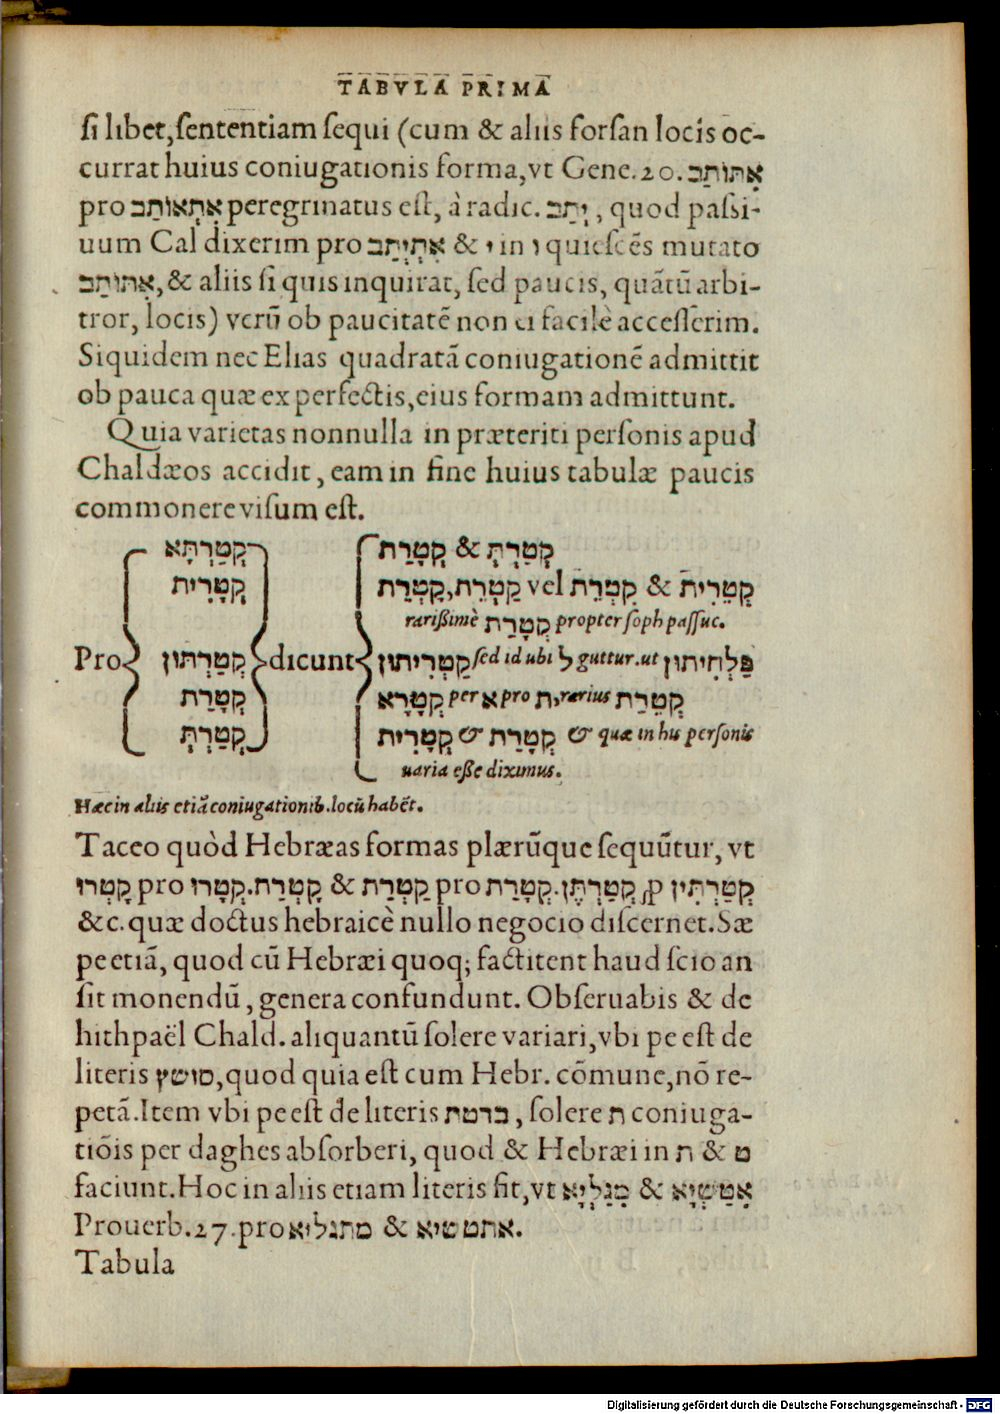 TABVLA PRIMA
si libet, sententiam sequi (cum & aliis forsan locis oc-
currat huius coniugationis forma, vt Gene. 20. אִתּוֹתַב
pro אִתְאוֹתַב peregrinatus est, à radic. יְתַב, quod passi-
uum Cal dixerim pro אִתְיְתַב & י in ו quiescēs mutato
אִתּוֹתַב, & aliis si quis inquirat, sed paucis, quātū arbi-
tror, locis) verū ob paucitatē non ei facilè accesserim.
Siquidem nec Elias quadratā coniugationē admittit
ob pauca quæ ex perfectis, eius formam admittunt.
Quia varietas nonnulla in præteriti personis apud
Chaldæos accidit, eam in fine huius tabulæ paucis
commonere visum est.
קְטַרְתָּא קְטַרְתְּ & קְטָרַת
קְטָרִית קְטֵרִית & קִטְרֵת vel קַטְרֵת, קִטְרַת
rarißimè קְטָרַת propter soph passuc.
Pro קְטַרְתּוּן dicunt קַטְרִיתוּן sed id ubi ל guttur. ut פַּלְחִיתוּן
קְטָרַת קְטָרָא per א pro ת, rarius קְטֵרַת
קְטַרְתְּ קְטָרִית & קְטָרַת & quæ in his personis
uaria esse diximus.
Hæc in aliis etiā coniugationib. locū habēt.
Taceo quòd Hebræas formas plærūque sequūtur, vt
קְטַרְתִּין ꝓ קְטַרְתֶּן. קְטָרַת pro קַטְרַת & קָטְרַת. קְטָרוּ pro קָטְרוּ
&c. quæ doctus hebraicè nullo negocio discernet. Sæ
pe etiā, quod cū Hebræi quoq; factitent haud scio an
sit monendū, genera confundunt. Obseruabis & de
hithpaël Chald. aliquantū solere variari, vbi pe est de
literis סושץ, quod quia est cum Hebr. cōmune, nō re-
petā. Item vbi pe est de literis ברטת, solere ת coniuga-
tiōis per daghes absorberi, quod & Hebræi in ת & ט
faciunt. Hoc in aliis etiam literis fit, vt אִטַּשְׁיָא & מִגַּלְיָא
Prouerb. 27. pro אתטשיא & מתגליא.
Tabula
Digitalisierung gefördert durch die Deutsche Forschungsgemeinschaft - DFG